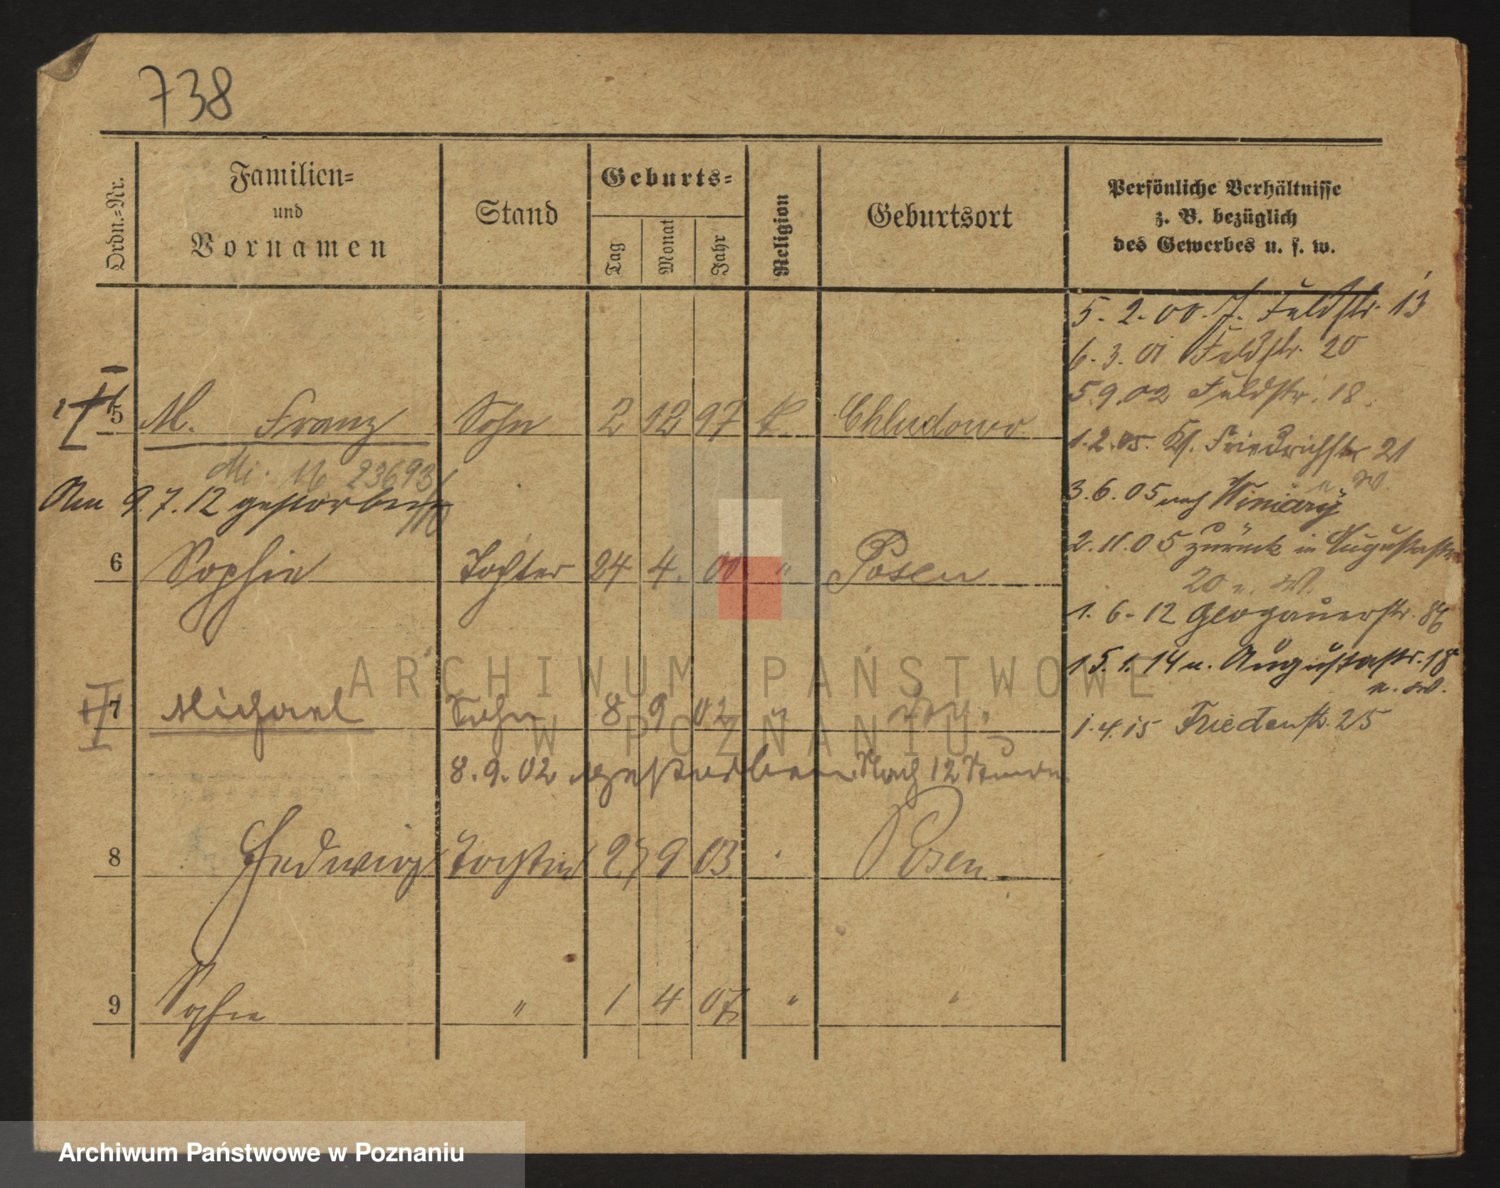 738
Ordn.-Nr.
Familien-
und
Vornamen
Stand
Geburts-
Tag
Monat
Jahr
Religion
Geburtsort
Persönliche Verhältnisse
z. B. bezüglich
des Gewerbes u. s. w.
5. 2. 00. Feldstr. 13
6. 3. 01 Feldstr. 20
5 9. 02 Feldstr. 18.
5 M. Franz Sohn 2 12 97 k. Chludowo
1. 2. 05. Kl. Friedrichstr 21
23693
3. 6. 05 nach Winiary
Am 9. 7. 12 gestorben
2. 11. 05 zurück in Augustastr
20 u. W.
6 Sophie Tochter 24 4. 00 " Posen
1. 6. 12 Glogauerstr. 86
15. 1. 14 u. Augustastr. 18
u. W.
7 Michael Sohn 8 9 02 "
1. 4. 15 Friedenstr. 25
8. 9. 02 gestorben Nach 12 Stunden
8 Hedwig Tochter 27 9 03 Posen
9 Sophie " 1 4 07 " "
ARCHIWUM PAŃSTWOWE
W POZNANIU
Archiwum Państwowe w Poznaniu